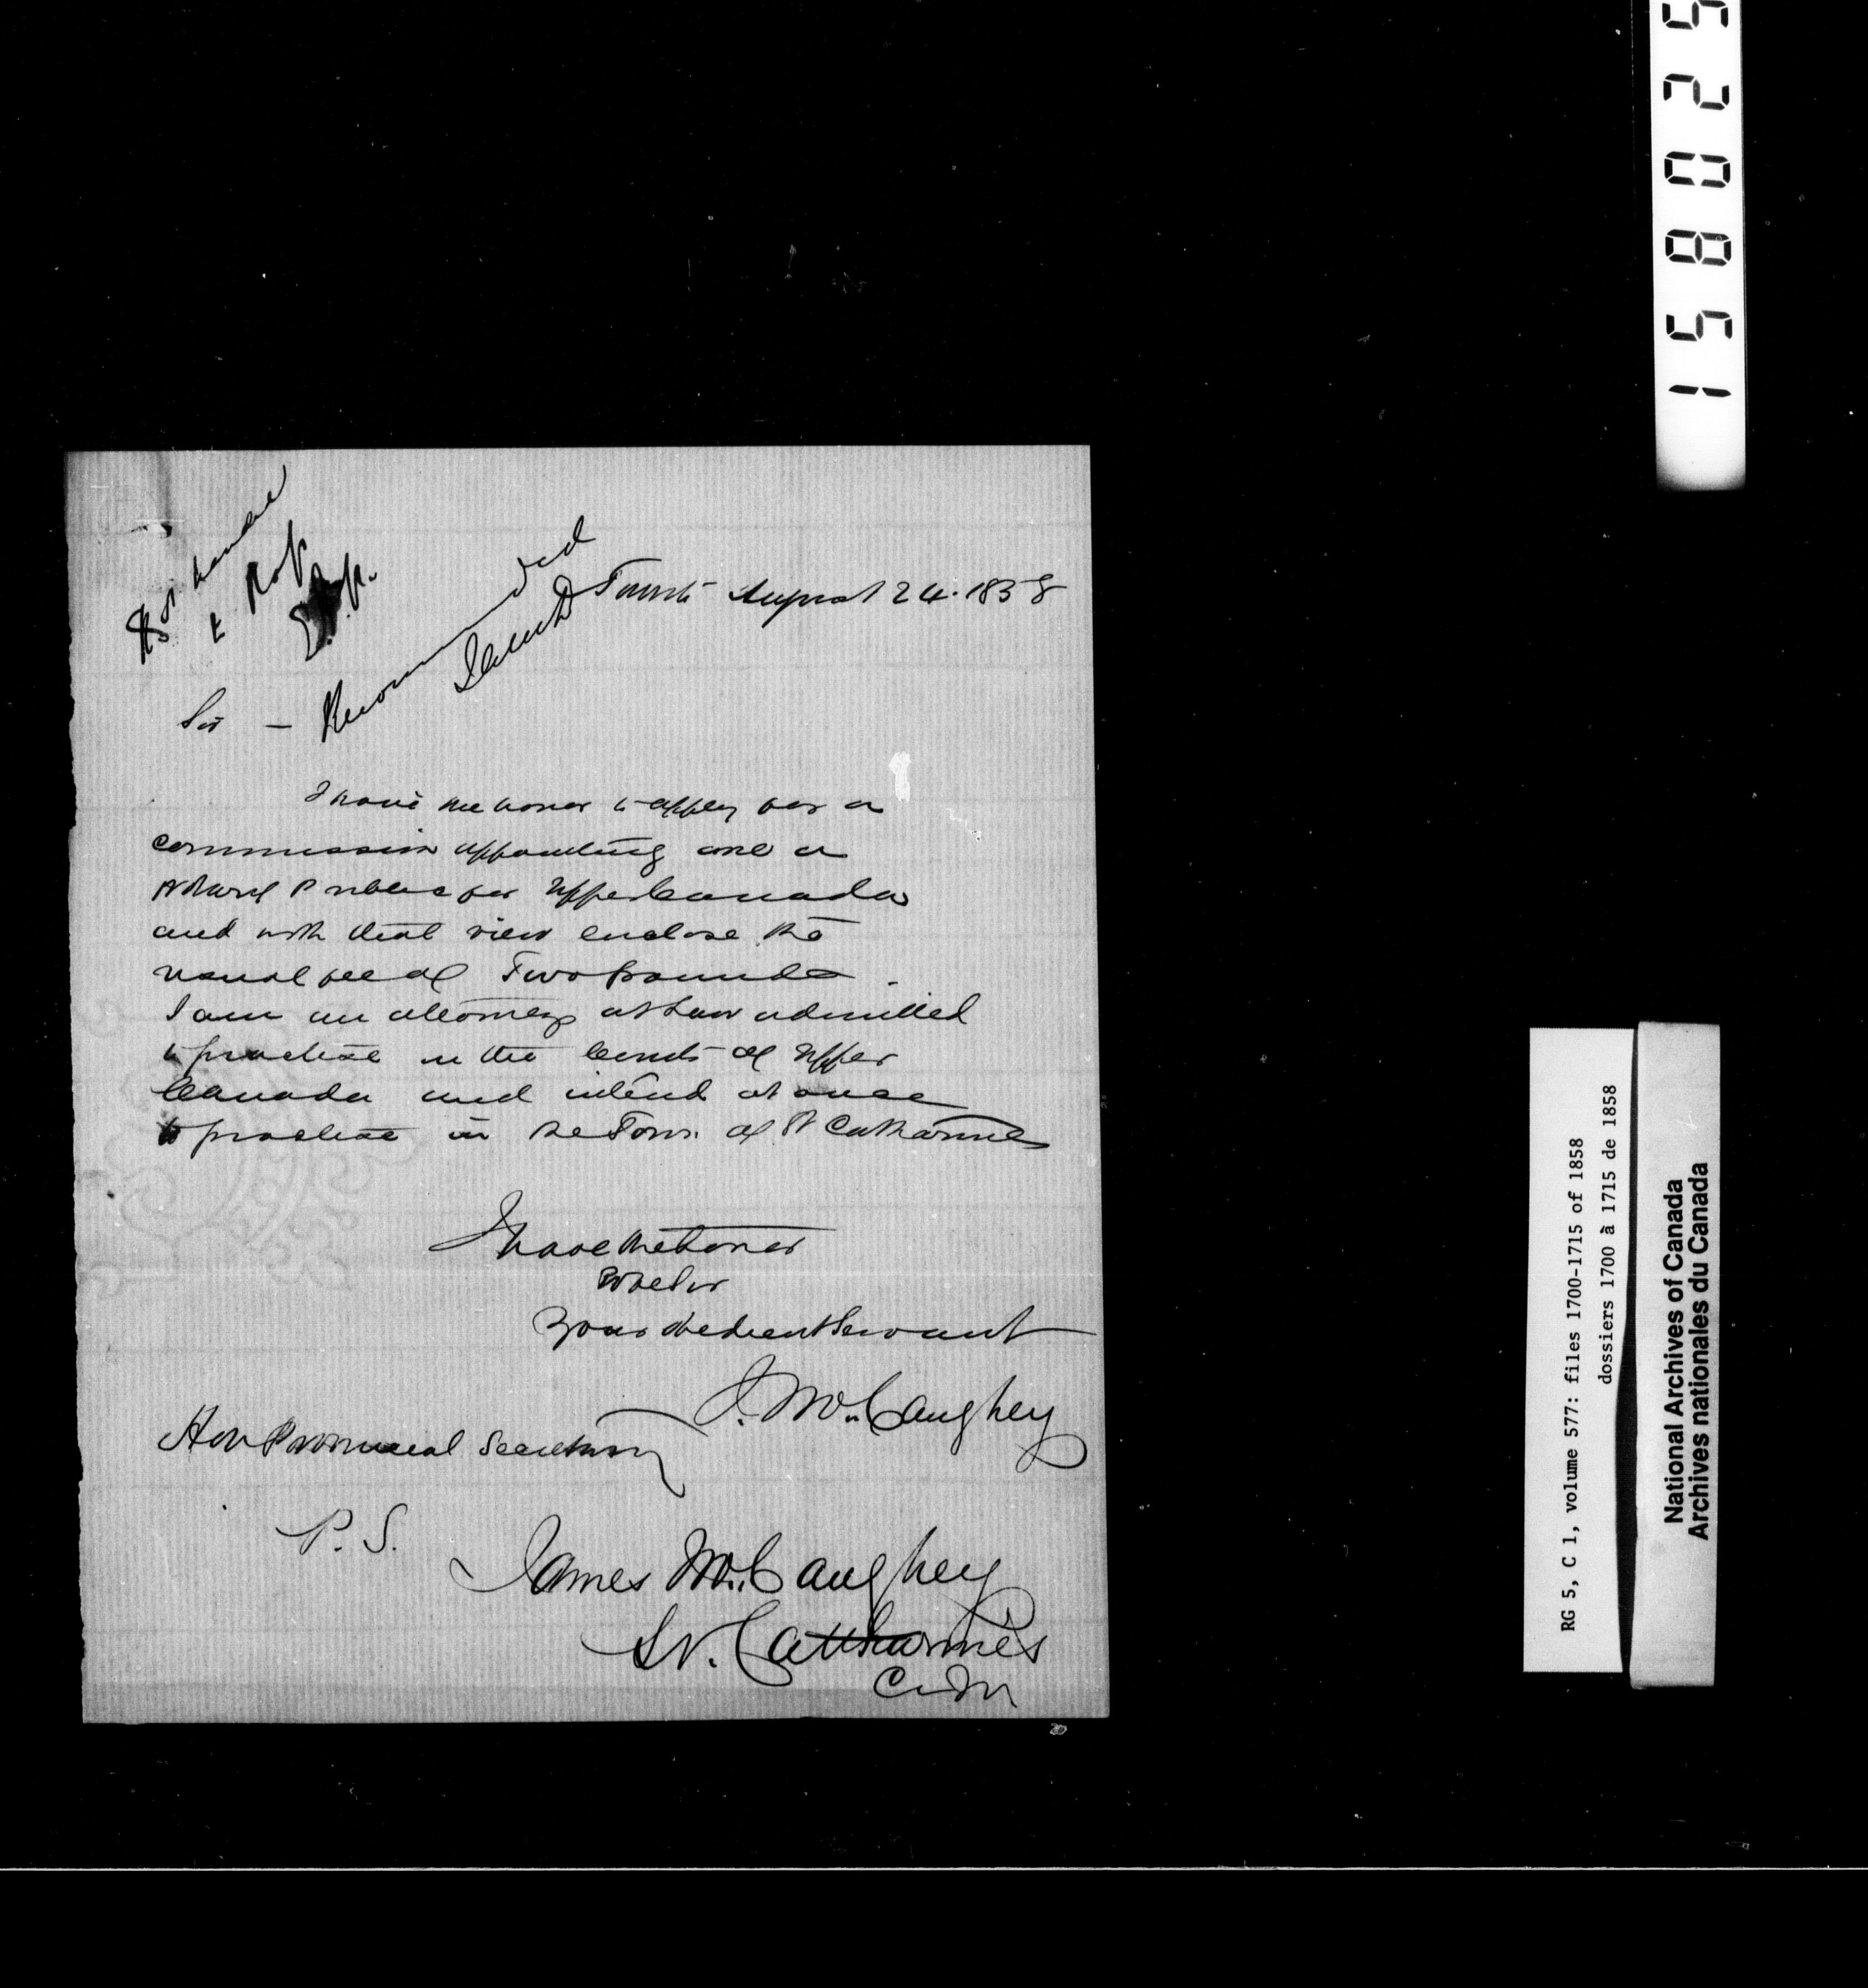 Recommended
Toronto August 24. 1858
Sir —
I have the honor to apply for a
commission appointing me a
Notary Public for Upper Canada
and with that view enclose the
usual fee of Two pounds.
I am an attorney at Law admitted
to practise in the Courts of Upper
Canada and intend at once
to practise in the Town of St Catharines
I have the honor
to be Sir
Your obedient Servant
J. McCaughey
Hon Provincial Secretary
P.S.
James McCaughey
St. Catharines
C.W.
158025
RG 5, C 1, volume 577: files 1700-1715 of 1858
dossiers 1700 à 1715 de 1858
National Archives of Canada
Archives nationales du Canada